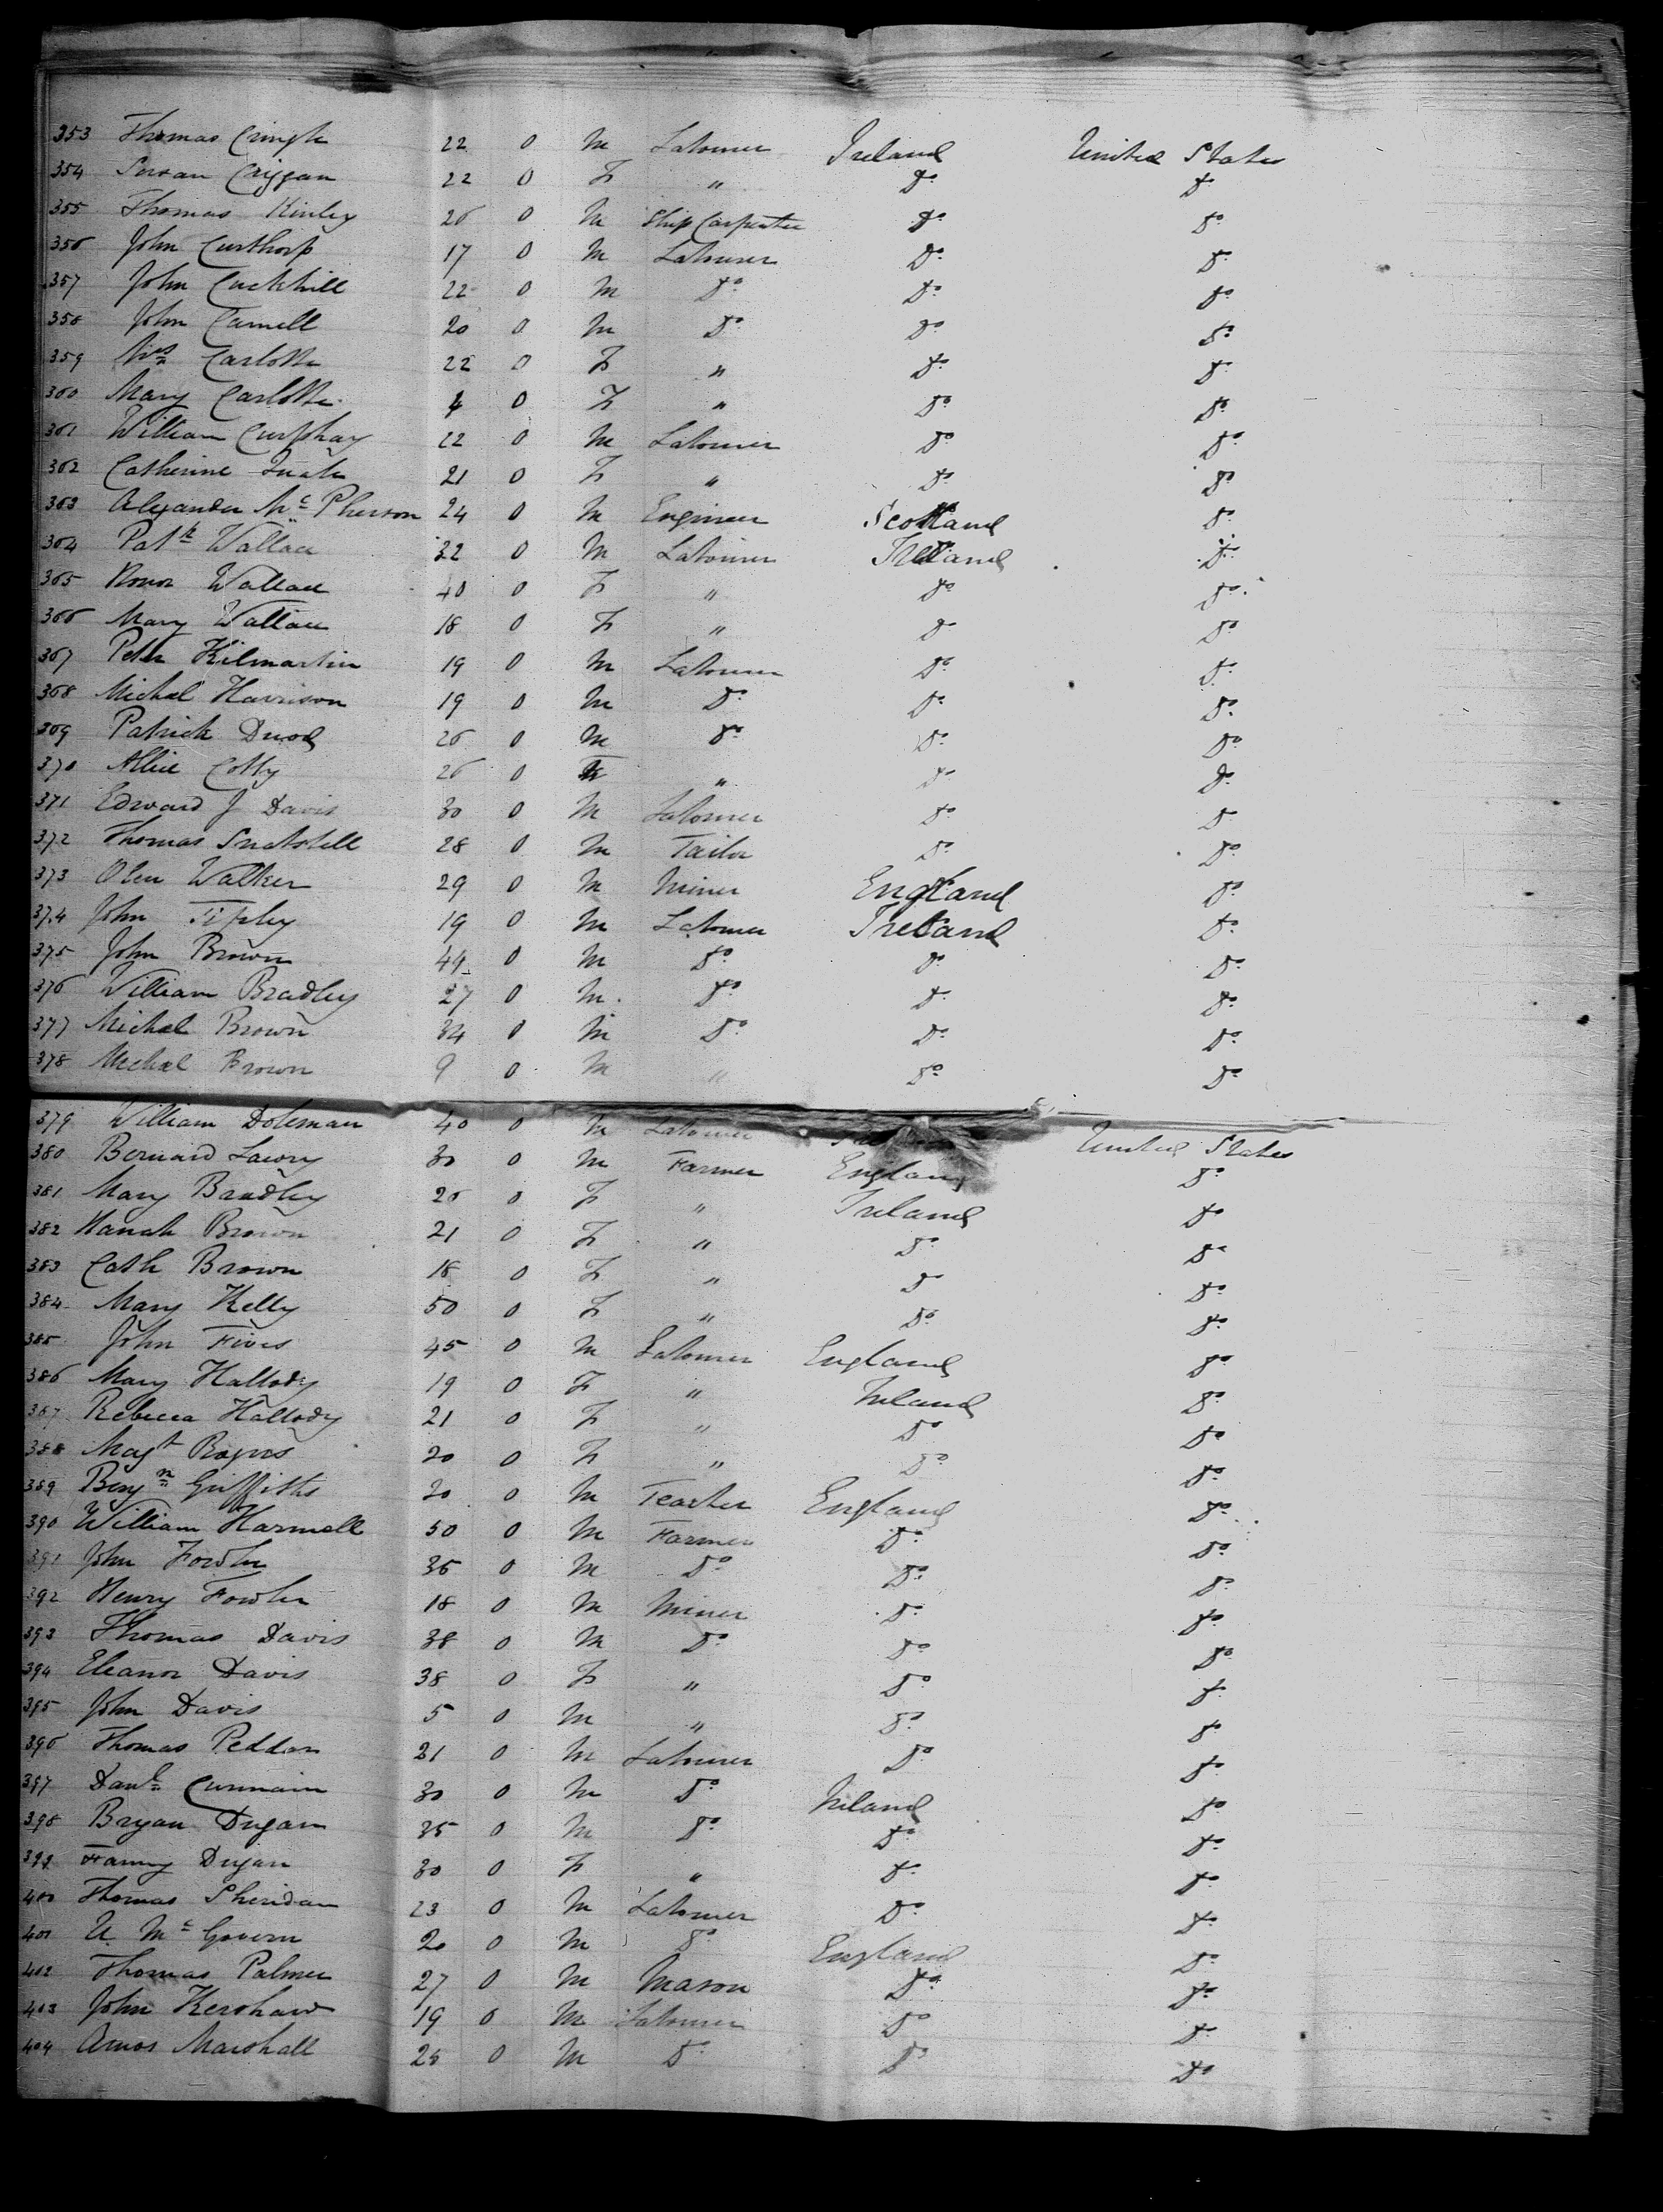 353 Thomas Cringle 22 0 M Labourer Ireland United States
354 Susan Criggan 22 0 F " Do Do
355 Thomas Kinley 26 0 M Ship Carpenter Do Do
356 John 17 0 M Labourer Do Do
357 John Cuckhill 22 0 M Do Do Do
358 John Camell 20 0 M Do Do Do
359 Mrs Carlotte 22 0 F " Do Do
360 Mary Carlotte 4 0 F " Do Do
361 William Curphay 22 0 M Labourer Do Do
362 Catherine Quale 21 0 F " Do Do
363 Alexander Mc Pherson 24 0 M Engineer Scotland Do
364 Patk Wallace 32 0 M Labourer Ireland Do
365 Honor Wallace 40 0 F " Do Do
366 Mary Wallace 18 0 F " Do Do
367 Peter Kilmartin 19 0 M Labourer Do Do
368 Michal Harrison 19 0 M Do Do Do
369 Patrick Duod 26 0 M Do Do Do
370 Allice 26 0 F " Do Do
371 Edward J Davis 30 0 M Labourer Do Do
372 Thomas 28 0 M Tailor Do Do
373 Olen Walker 29 0 M Miner England Do
374 John 19 0 M Labourer Ireland Do
375 John Brown 44 0 M Do Do Do
376 William Bradley 27 0 M Do Do Do
377 Michal Brown 34 0 M Do Do Do
378 Michal Brown 9 0 M " Do Do
379 William Doleman 40 0 M Labourer United States
380 Bernard Lawry 30 0 M Farmer England Do
381 Mary Bradley 26 0 F " Ireland Do
382 Hanah Brown 21 0 F " Do Do
383 Cath Brown 18 0 F " Do Do
384 Mary Kelly 50 0 F " Do Do
385 John Fives 45 0 M Labourer England Do
386 Mary Hallody 19 0 F " Ireland Do
387 Rebecca Hallody 21 0 F " Do Do
388 Magt Rogers 20 0 F " Do Do
389 Benjn Griffiths 30 0 M England Do
390 William Harmell 50 0 M Farmer Do Do
391 John Fowler 36 0 M Do Do Do
392 Henry Fowler 18 0 M Miner Do Do
393 Thomas Davis 38 0 M Do Do Do
394 Eleanor Davis 38 0 F " Do Do
395 John Davis 5 0 M " Do Do
396 Thomas Peddan 21 0 M Labourer Do Do
397 Danl Curmain 30 0 M Do Ireland Do
398 Bryan Dugan 35 0 M Do Do Do
399 Fanny Dugan 30 0 F " Do Do
400 Thomas Sheridan 23 0 M Labourer Do Do
401 U. Mc Govern 20 0 M Do England Do
402 Thomas Palmer 27 0 M Mason Do Do
403 John Kershaw 19 0 M Labourer Do Do
404 Amos Marshall 28 0 M Do Do Do